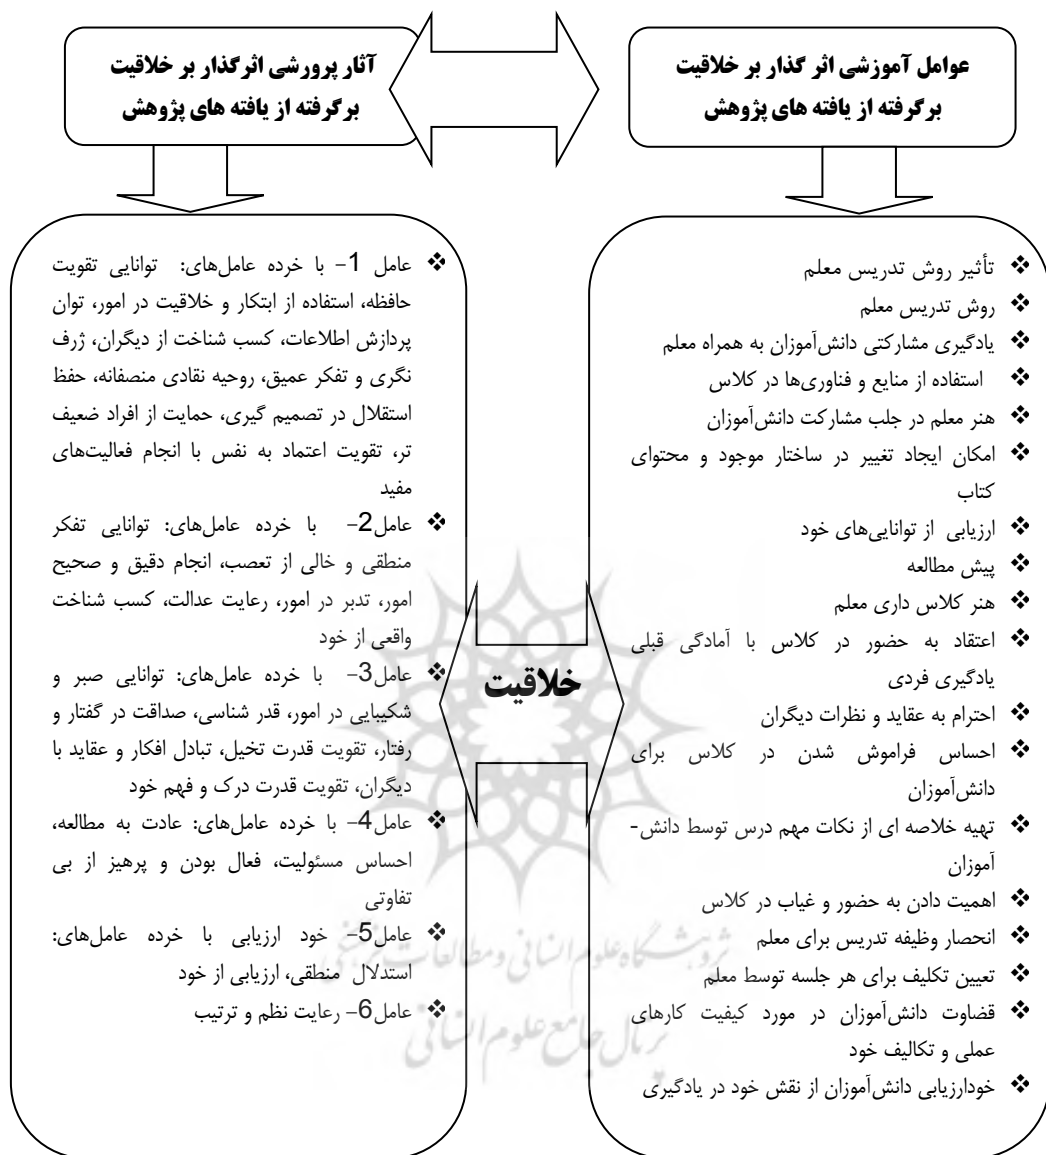 عوامل آموزشی اثر گذار بر خلاقیت
برگرفته از یافته های پژوهش
آثار پرورشی اثرگذار بر خلاقیت
برگرفته از یافته های پژوهش
❖ تأثیر روش تدریس معلم
❖ روش تدریس معلم
❖ یادگیری مشارکتی دانش‌آموزان به همراه معلم
❖ استفاده از منابع و فناوری‌ها در کلاس
❖ هنر معلم در جلب مشارکت دانش‌آموزان
❖ امکان ایجاد تغییر در ساختار موجود و محتوای
کتاب
❖ ارزیابی از توانایی‌های خود
❖ پیش مطالعه
❖ هنر کلاس داری معلم
❖ اعتقاد به حضور در کلاس با آمادگی قبلی
یادگیری فردی
❖ احترام به عقاید و نظرات دیگران
❖ احساس فراموش شدن در کلاس برای
دانش‌آموزان
❖ تهیه خلاصه ای از نکات مهم درس توسط دانش-
آموزان
❖ اهمیت دادن به حضور و غیاب در کلاس
❖ انحصار وظیفه تدریس برای معلم
❖ تعیین تکلیف برای هر جلسه توسط معلم
❖ قضاوت دانش‌آموزان در مورد کیفیت کارهای
عملی و تکالیف خود
❖ خودارزیابی دانش‌آموزان از نقش خود در یادگیری
خلاقیت
❖ عامل 1- با خرده عامل‌های: توانایی تقویت
حافظه، استفاده از ابتکار و خلاقیت در امور، توان
پردازش اطلاعات، کسب شناخت از دیگران، ژرف
نگری و تفکر عمیق، روحیه نقادی منصفانه، حفظ
استقلال در تصمیم گیری، حمایت از افراد ضعیف
تر، تقویت اعتماد به نفس با انجام فعالیت‌های
مفید
❖ عامل2- با خرده عامل‌های: توانایی تفکر
منطقی و خالی از تعصب، انجام دقیق و صحیح
امور، تدبر در امور، رعایت عدالت، کسب شناخت
واقعی از خود
❖ عامل3- با خرده عامل‌های: توانایی صبر و
شکیبایی در امور، قدر شناسی، صداقت در گفتار و
رفتار، تقویت قدرت تخیل، تبادل افکار و عقاید با
دیگران، تقویت قدرت درک و فهم خود
❖ عامل4- با خرده عامل‌های: عادت به مطالعه،
احساس مسئولیت، فعال بودن و پرهیز از بی
تفاوتی
❖ عامل5- خود ارزیابی با خرده عامل‌های:
استدلال منطقی، ارزیابی از خود
❖ عامل6- رعایت نظم و ترتیب
پژوهشگاه علوم انسانی و مطالعات فرهنگی
پرتال جامع علوم انسانی